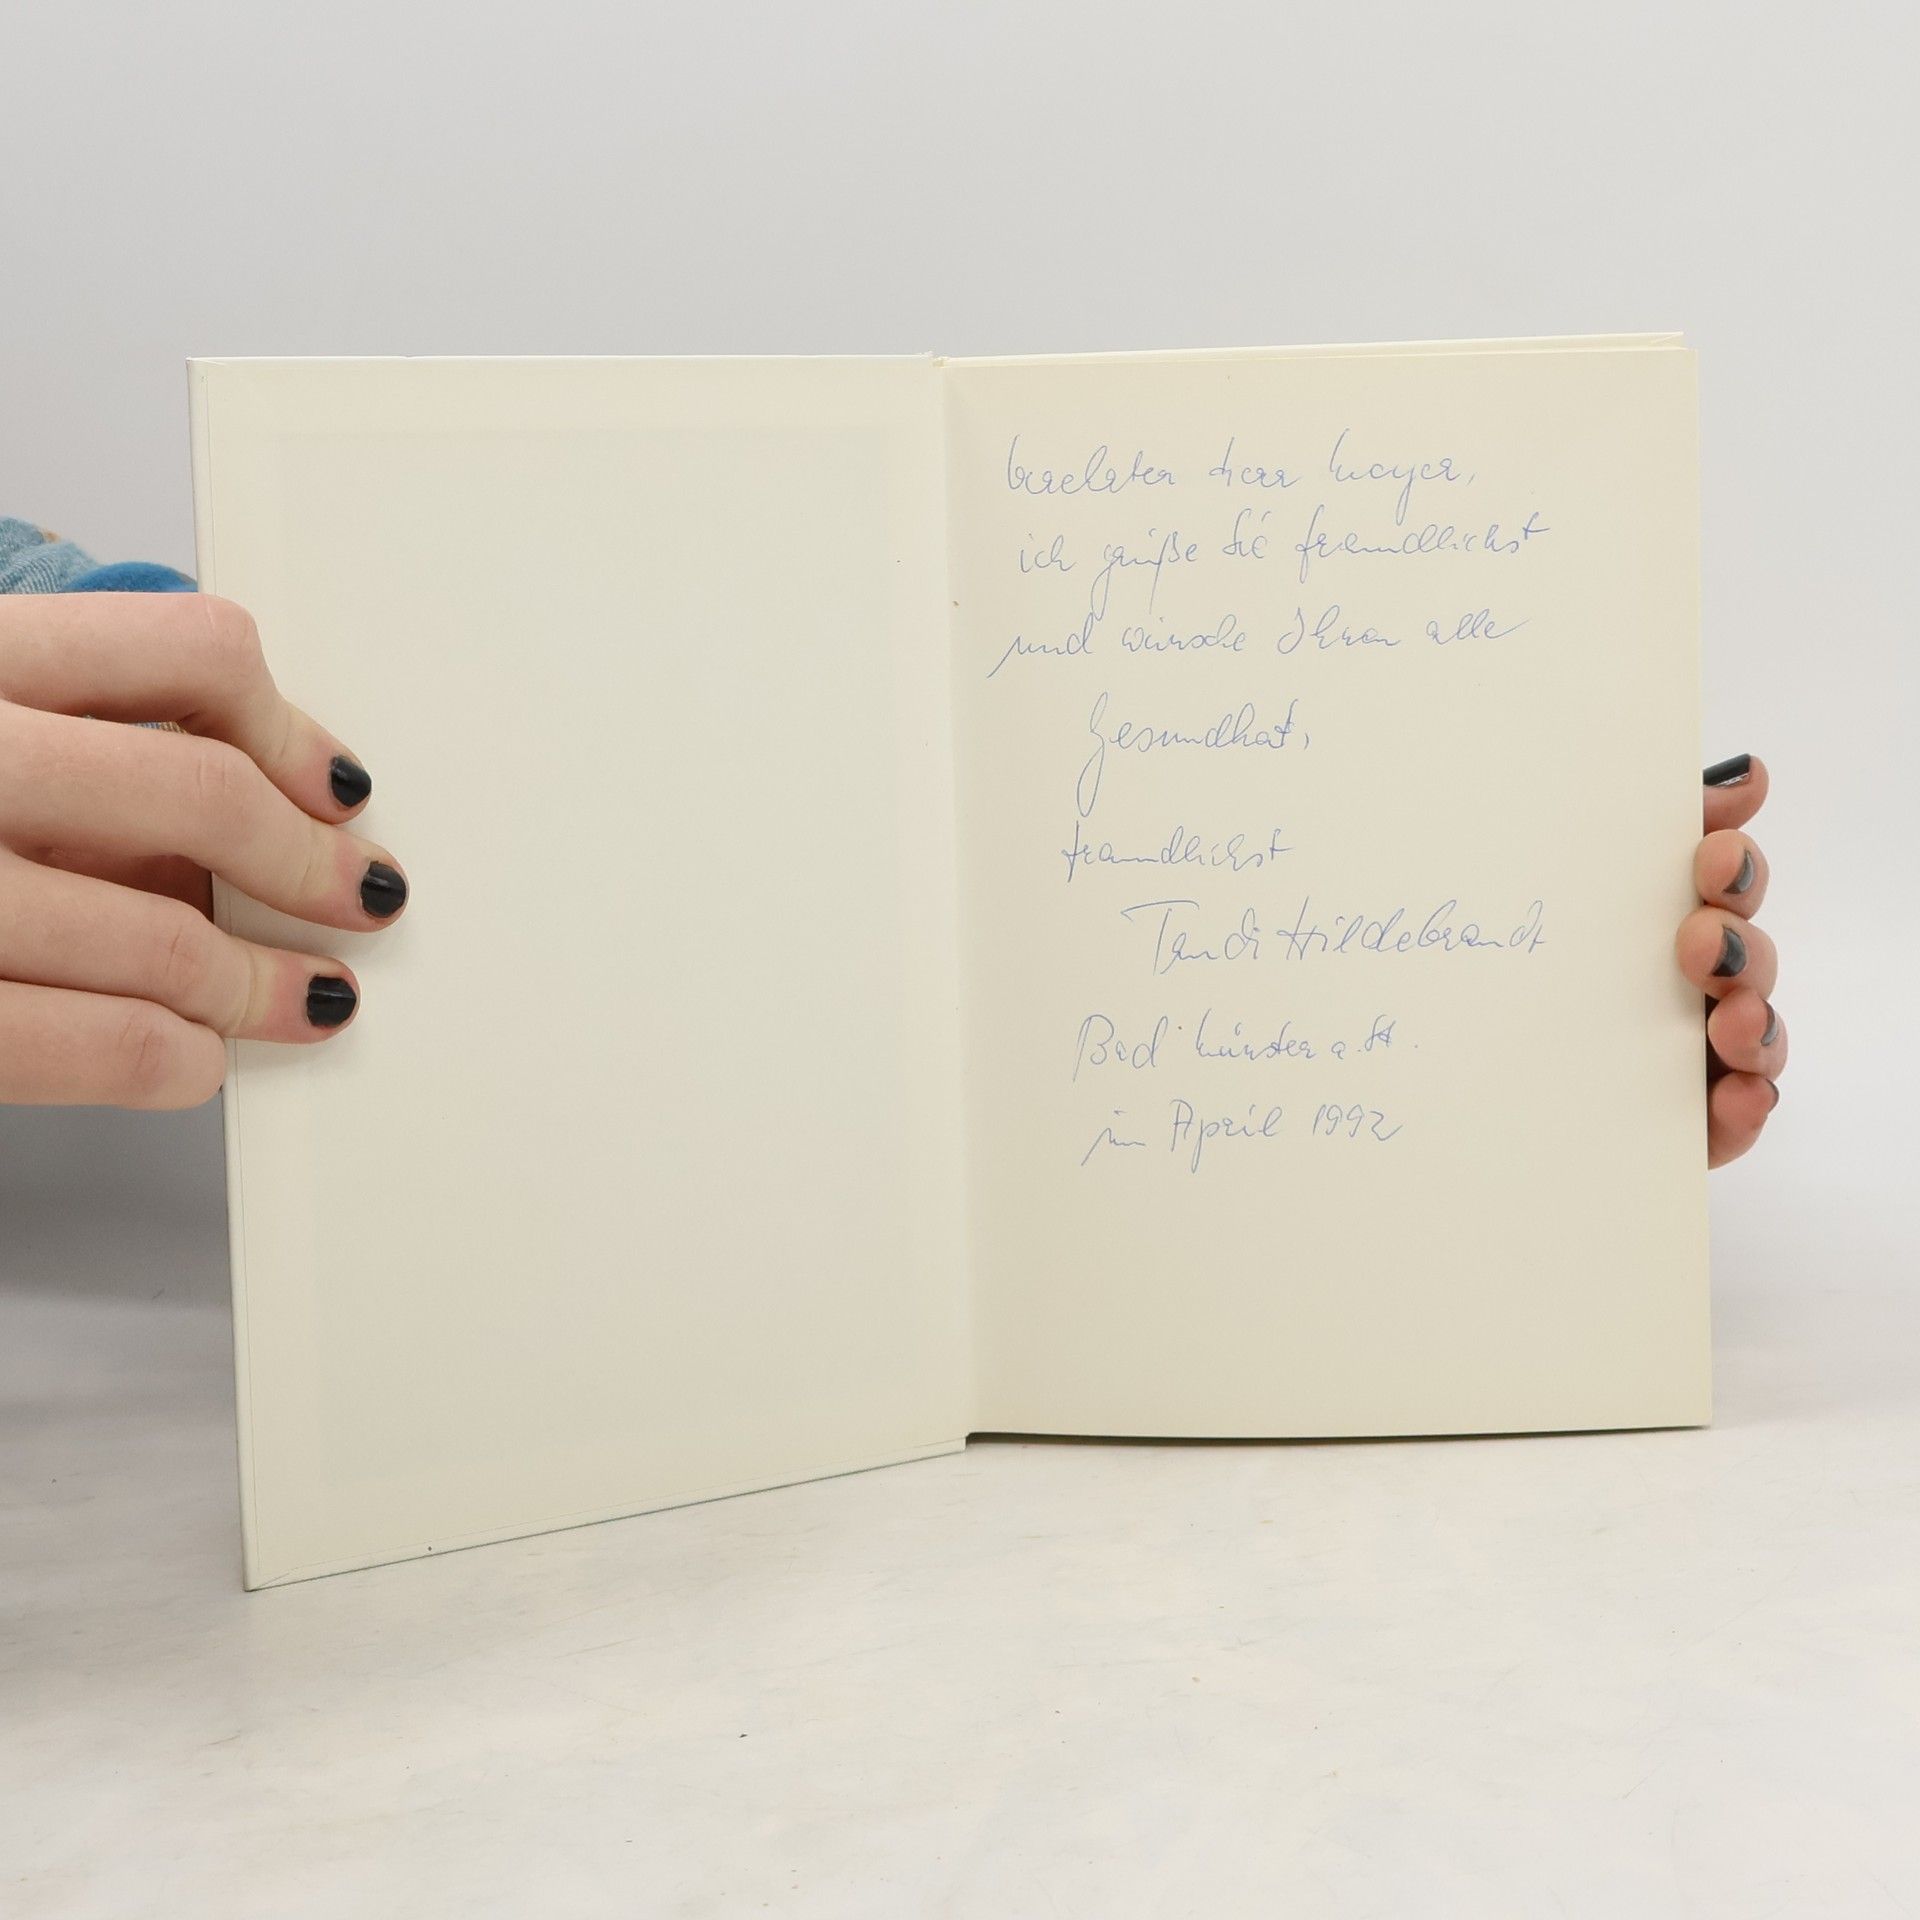 verehrter Herr Mayer,
ich grüße Sie freundlichst
und wünsche Ihnen alle
Gesundheit,
freundlichst
Hildebrandt
Bad Münster a. St.
im April 1992